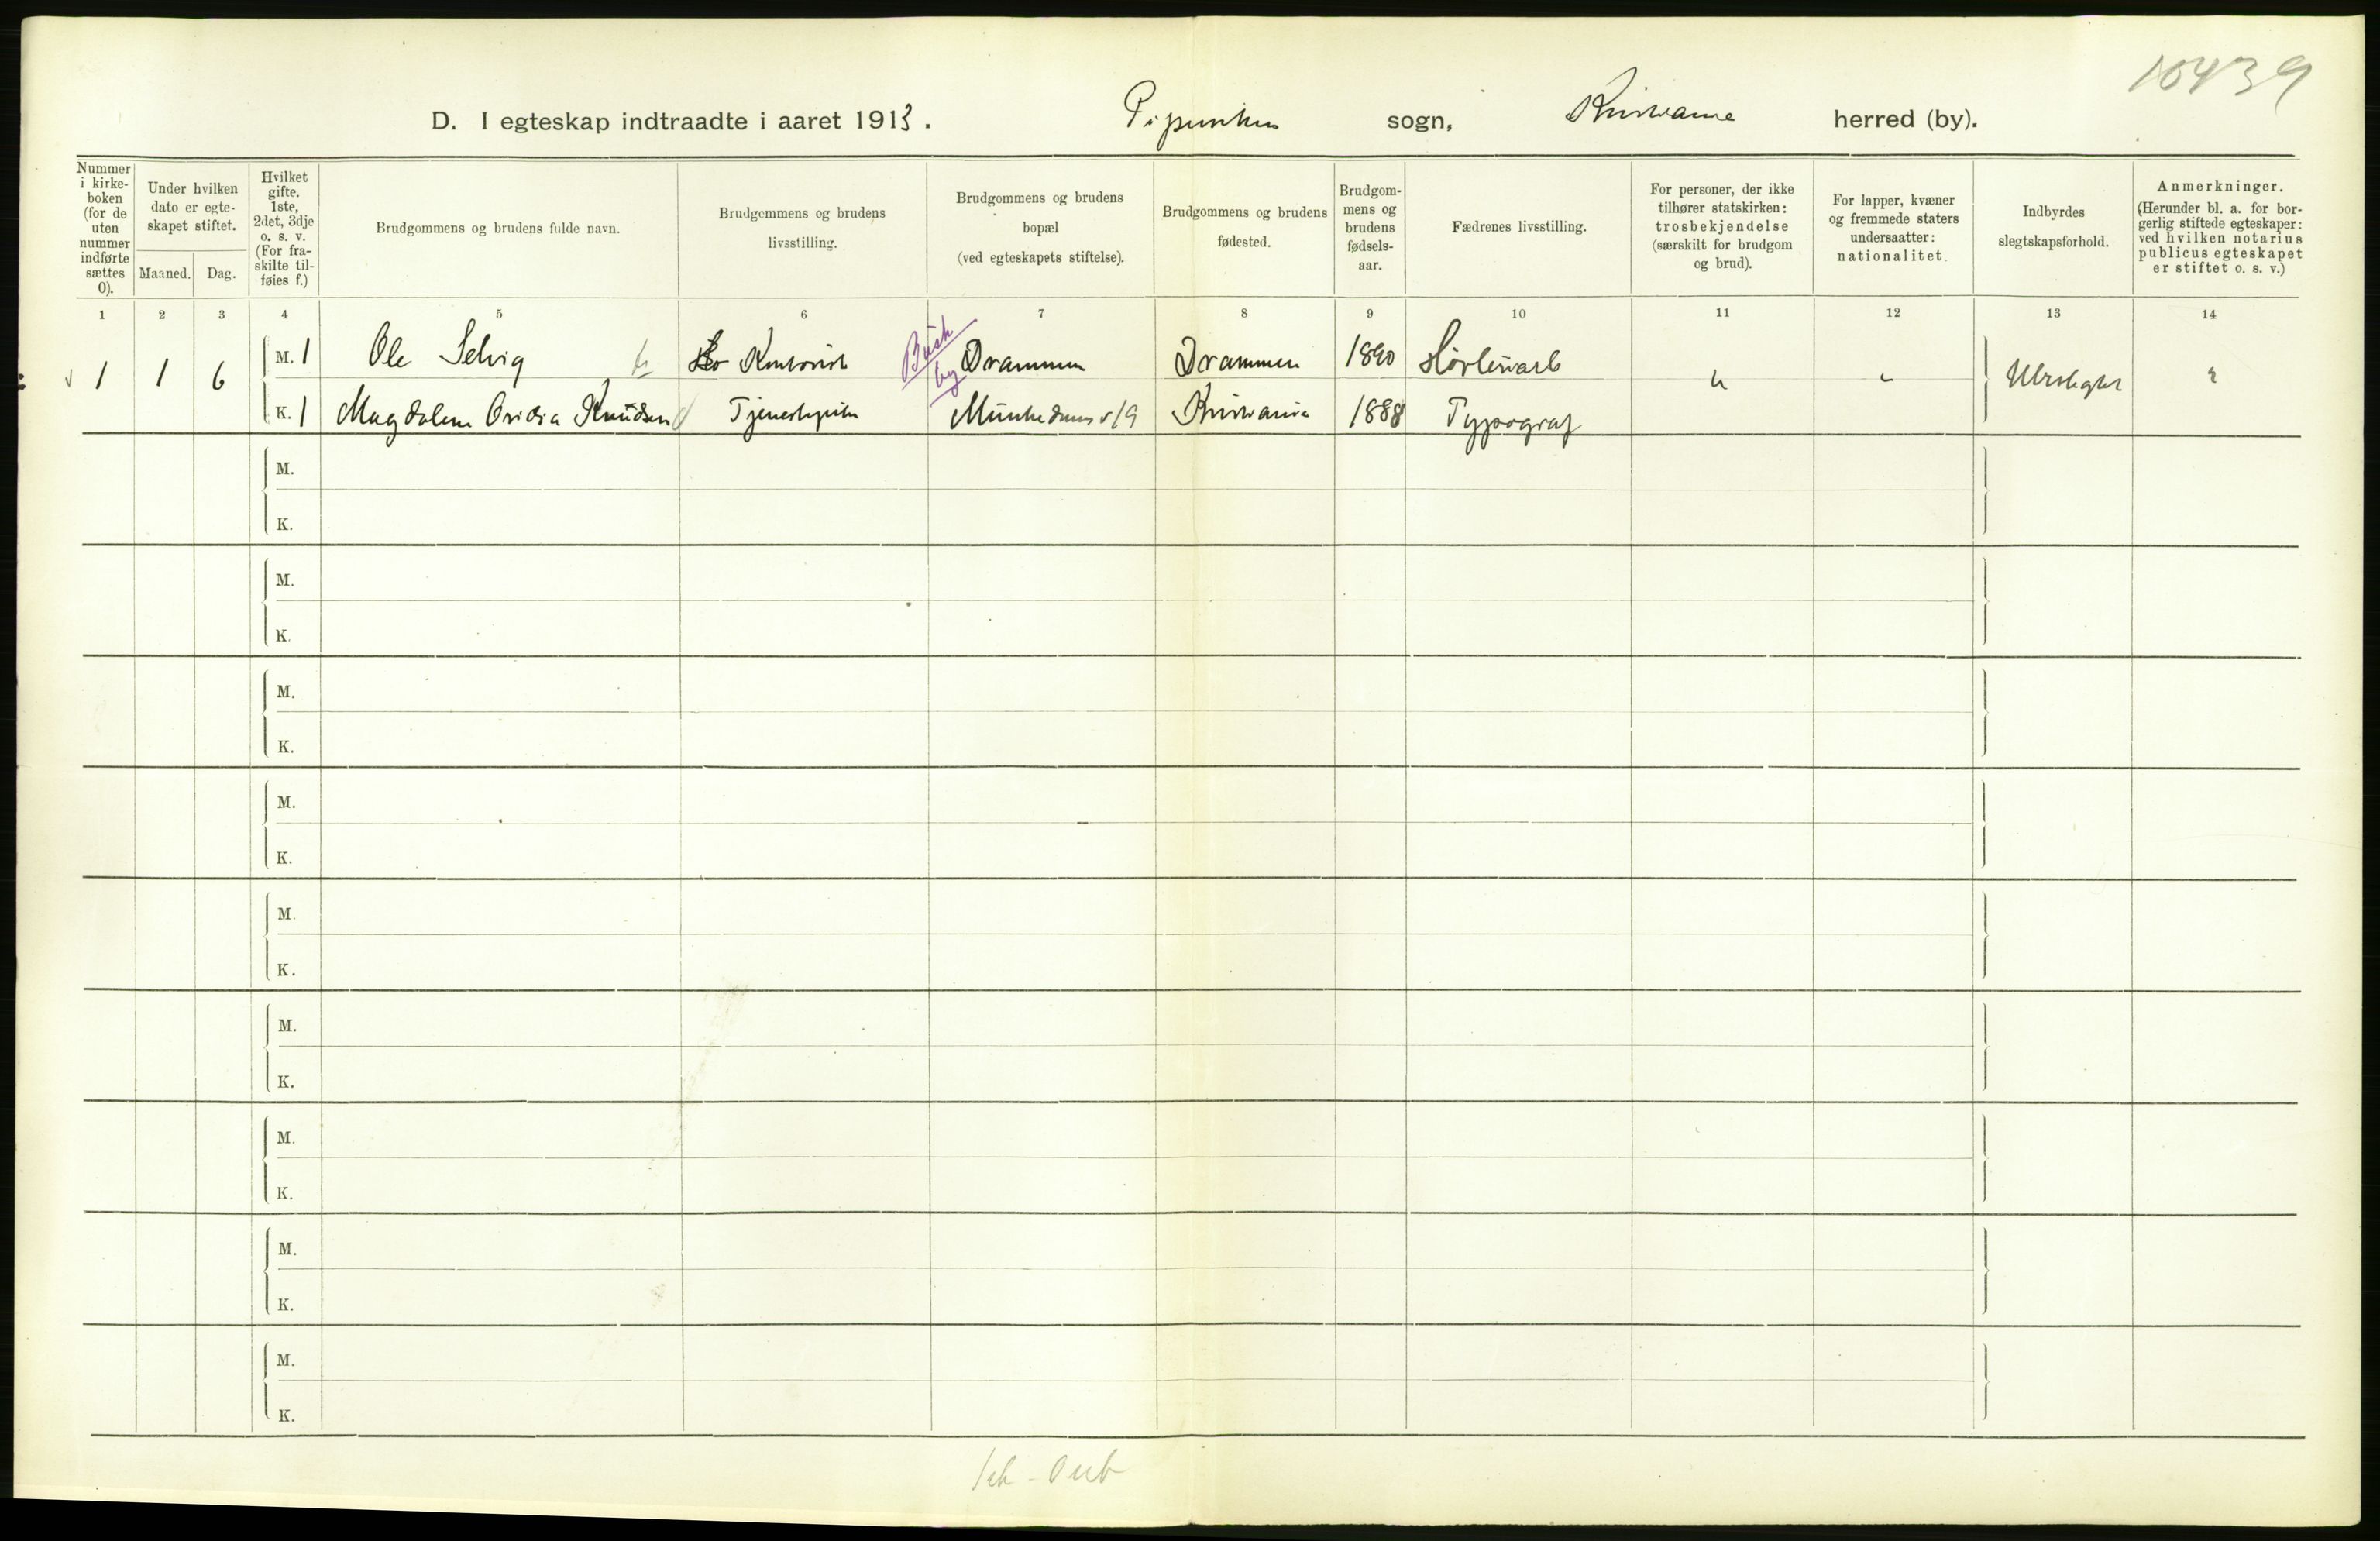 10439
D. I egteskap indtraadte i aaret 1913. sogn, Kristiania herred (by).
Nummer i kirke-boken (for de uten nummer indførte sættes 0).
Under hvilken dato er egte-skapet stiftet.
Maaned.
Dag.
Hvilket gifte. 1ste, 2det, 3dje o. s. v. (For fra-skilte til-føies f.)
Brudgommens og brudens fulde navn.
Brudgommens og brudens livsstilling.
Brudgommens og brudens bopæl (ved egteskapets stiftelse).
Brudgommens og brudens fødested.
Brudgom-mens og brudens fødsels-aar.
Fædrenes livsstilling.
For personer, der ikke tilhører statskirken: trosbekjendelse (særskilt for brudgom og brud).
For lapper, kvæner og fremmede staters undersaatter: nationalitet.
Indbyrdes slegtskapsforhold.
Anmerkninger. (Herunder bl. a. for bor-gerlig stiftede egteskaper: ved hvilken notarius publicus egteskapet er stiftet o. s. v.)
1 2 3 4 5 6 7 8 9 10 11 12 13 14
1 1 6 M. 1 Ole Selvig Kontorist Busk by Drammen Drammen 1890 Ubeslegtet
K. 1 Magdalene Ovidia Knudsen Tjenestepike Munkedamsv 19 Kristiania 1888 Typograf
M.
K.
M.
K.
M.
K.
M.
K.
M.
K.
M.
K.
M.
K.
M.
K.
M.
K.